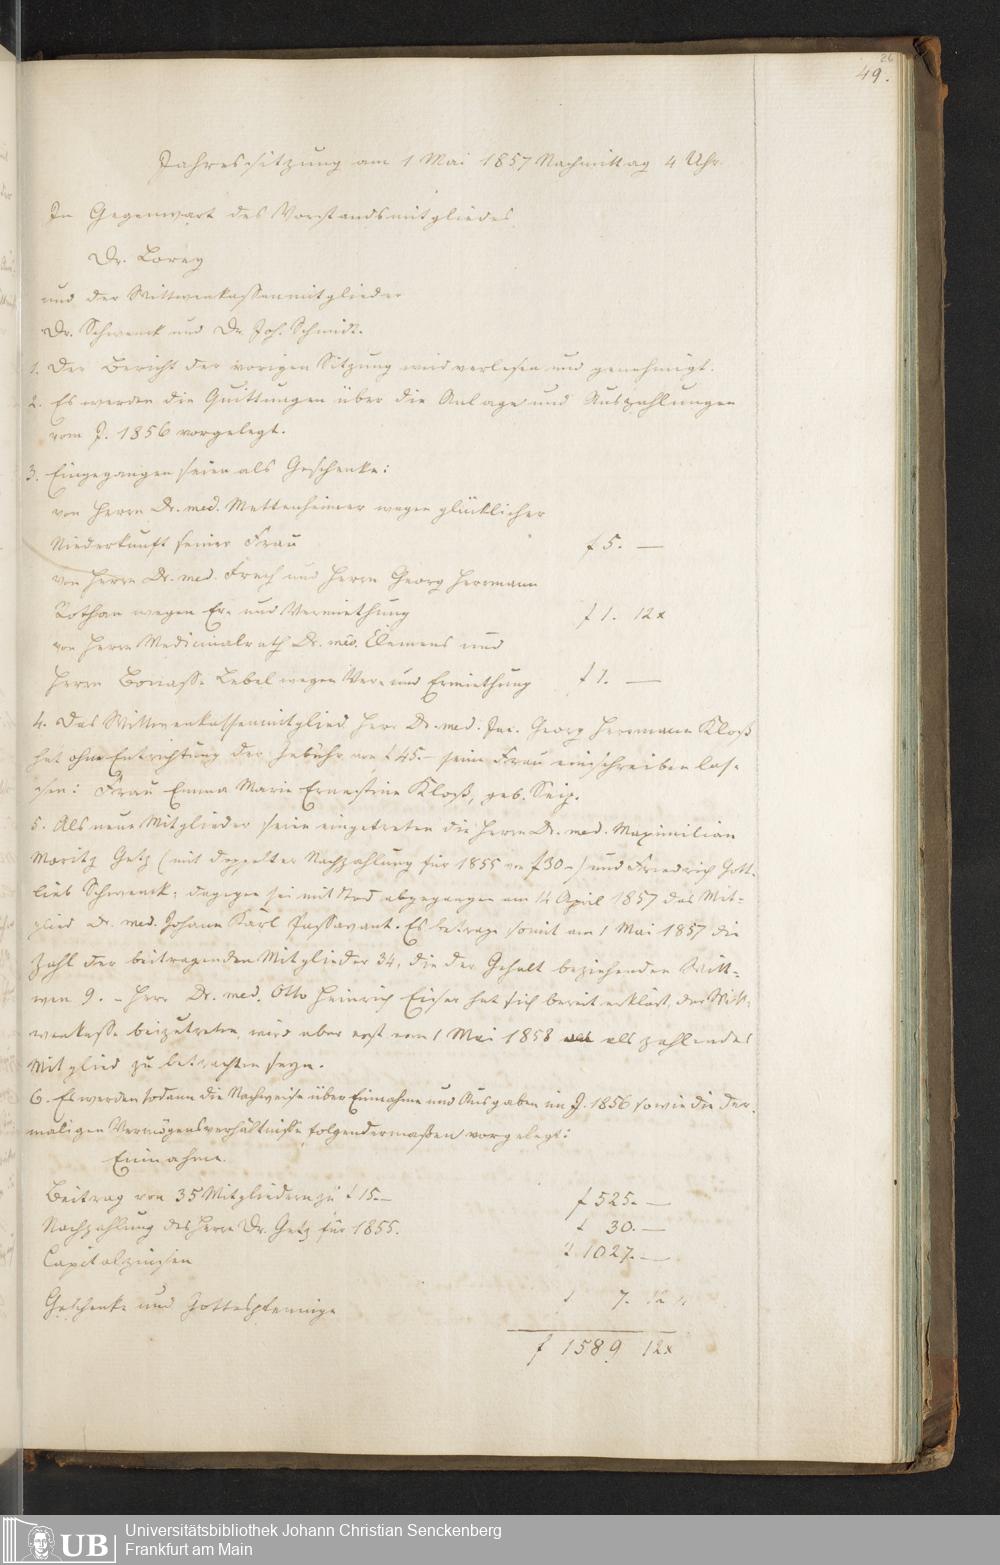 26
49.
Jahressitzung am 1 Mai 1857 Nachmittag 4 Uhr.
In Gegenwart des Vorstandsmitgliedes
Dr. Lorey
und der Wittwenkassenmitglieder
Dr. Schwenck und Dr Joh. Schmidt.
1. Der Bericht der vorigen Sitzung wird verlesen und genehmigt.
2. Es werden die Quittungen über die Anlage und Auszahlungen
vom J. 1856 vorgelegt.
3. Eingegangen seien als Geschenke:
von Herrn Dr. med. Mettenheimer wegen glücklicher
Niederkunft seiner Frau f 5. —
von Herrn Dr. med. Fresch und Herrn Georg Herrmann
Rothan wegen Er- und Vermiethung f 1. 12x
von Herrn Medicinalrath Dr. med. Clemens und
Herrn Bonass. Lebel wegen Ver- und Ermiethung f 1. —
4. Das Wittwenkassenmitglied Herr Dr. med. Jac. Georg Herrmann Kloß
hat ohne Entrichtung der Gebühr von f 45.— seine Frau einschreiben las-
sen: Frau Emma Marie Ernestine Kloß, geb. Seip.
5. Als neue Mitglieder seien eingetreten die Herrn Dr. med. Maximilian
Moritz Getz (mit doppelter Nachzahlung für 1855 von f 30 –) und Friedrich Gott-
lieb Schwenck; dagegen sei mit Tod abgegangen am 14 April 1857 das Mit-
glied Dr. med. Johann Karl Passavant. Es betrage somit am 1 Mai 1857 die
Zahl der beitragenden Mitglieder 34, die der Gehalt beziehenden Witt-
wen 9. – Herr Dr. med. Otto Heinrich Eiser hat sich bereit erklärt, der Witt-
wenkasse beizutreten, wird aber erst vom 1 Mai 1858 als zahlendes
Mitglied zu betrachten seyn.
6. Es werden sodann die Nachweise über Einnahme und Ausgaben im J. 1856 sowie die der-
maligen Vermögensverhältnisse folgendermaßen vorgelegt:
Einnahme.
Beitrag von 35 Mitgliedern zu f 15.— f 525. —
Nachzahlung des Herrn Dr. Getz für 1855. f 30. —
Capitalzinsen f 1027. —
Geschenke und Gottespfennige f 7. 12 "
f 1589 12x
UB
Universitätsbibliothek Johann Christian Senckenberg
Frankfurt am Main